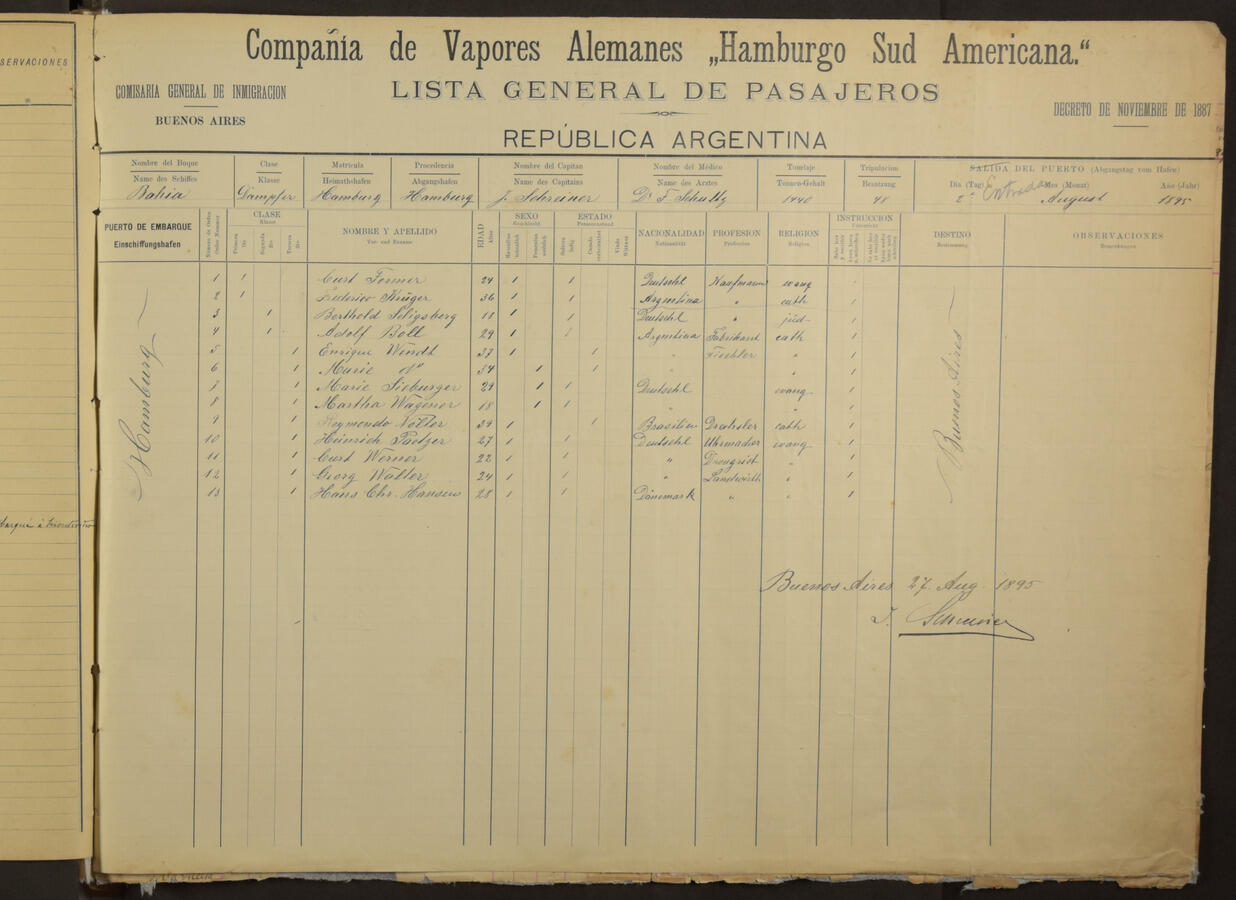 SERVACIONES
Compañía de Vapores Alemanes „Hamburgo Sud Americana.“
COMISARIA GENERAL DE INMIGRACION
BUENOS AIRES
LISTA GENERAL DE PASAJEROS
REPÚBLICA ARGENTINA
DECRETO DE NOVIEMBRE DE 1887
Nombre del Buque Clase Matricula Procedencia Nombre del Capitan Nombre del Médico Tonelaje Tripulacion SALIDA DEL PUERTO (Abgangstag vom Hafen)
Name des Schiffes Klasse Heimathshafen Abgangshafen Name des Capitains Name des Arztes Tonnen-Gehalt Besatzung Dia (Tag) Entrada Mes (Monat) Año (Jahr)
Bahia Dampfer Hamburg Hamburg J. Schreiner Dr F. Schultz 1440 48 August 1895
PUERTO DE EMBARQUE CLASE NOMBRE Y APELLIDO EDAD SEXO ESTADO NACIONALIDAD PROFESION RELIGION INSTRUCCION DESTINO OBSERVACIONES
Einschiffungshafen Klasse Vor- und Zuname Alter Geschlecht Personenstand Nationalität Profession Religion Unterricht Bestimmung Bemerkungen
Hamburg
Buenos Aires
1 1 Curt Fermer 24 1 1 Deutschl Kaufmann evang 1
2 1 Federico Krüger 36 1 1 Argentina " cath 1
3 1 Berthold Seligsberg 18 1 1 Deutschl " jüd 1
4 1 Adolf Böll 29 1 1 Argentina Fabrikant cath 1
5 1 Enrique Wendt 37 1 1 " Tischler " 1
6 1 Marie do 34 1 1 " 1
7 1 Marie Sieburger 29 1 1 Deutschl evang 1
8 1 Martha Wagener 18 1 1 " " 1
9 1 Reymondo Nolter 39 1 1 Brasilien Drechsler cath 1
10 1 Heinrich Paetzer 27 1 1 Deutschl Uhrmacher evang 1
11 1 Curt Werner 22 1 1 " Drougist " 1
12 1 Georg Walter 24 1 1 " Landwirth " 1
13 1 Hans Chr. Hansen 28 1 1 Dänemark " " 1
Buenos Aires 27. Aug. 1895
J. Schreiner